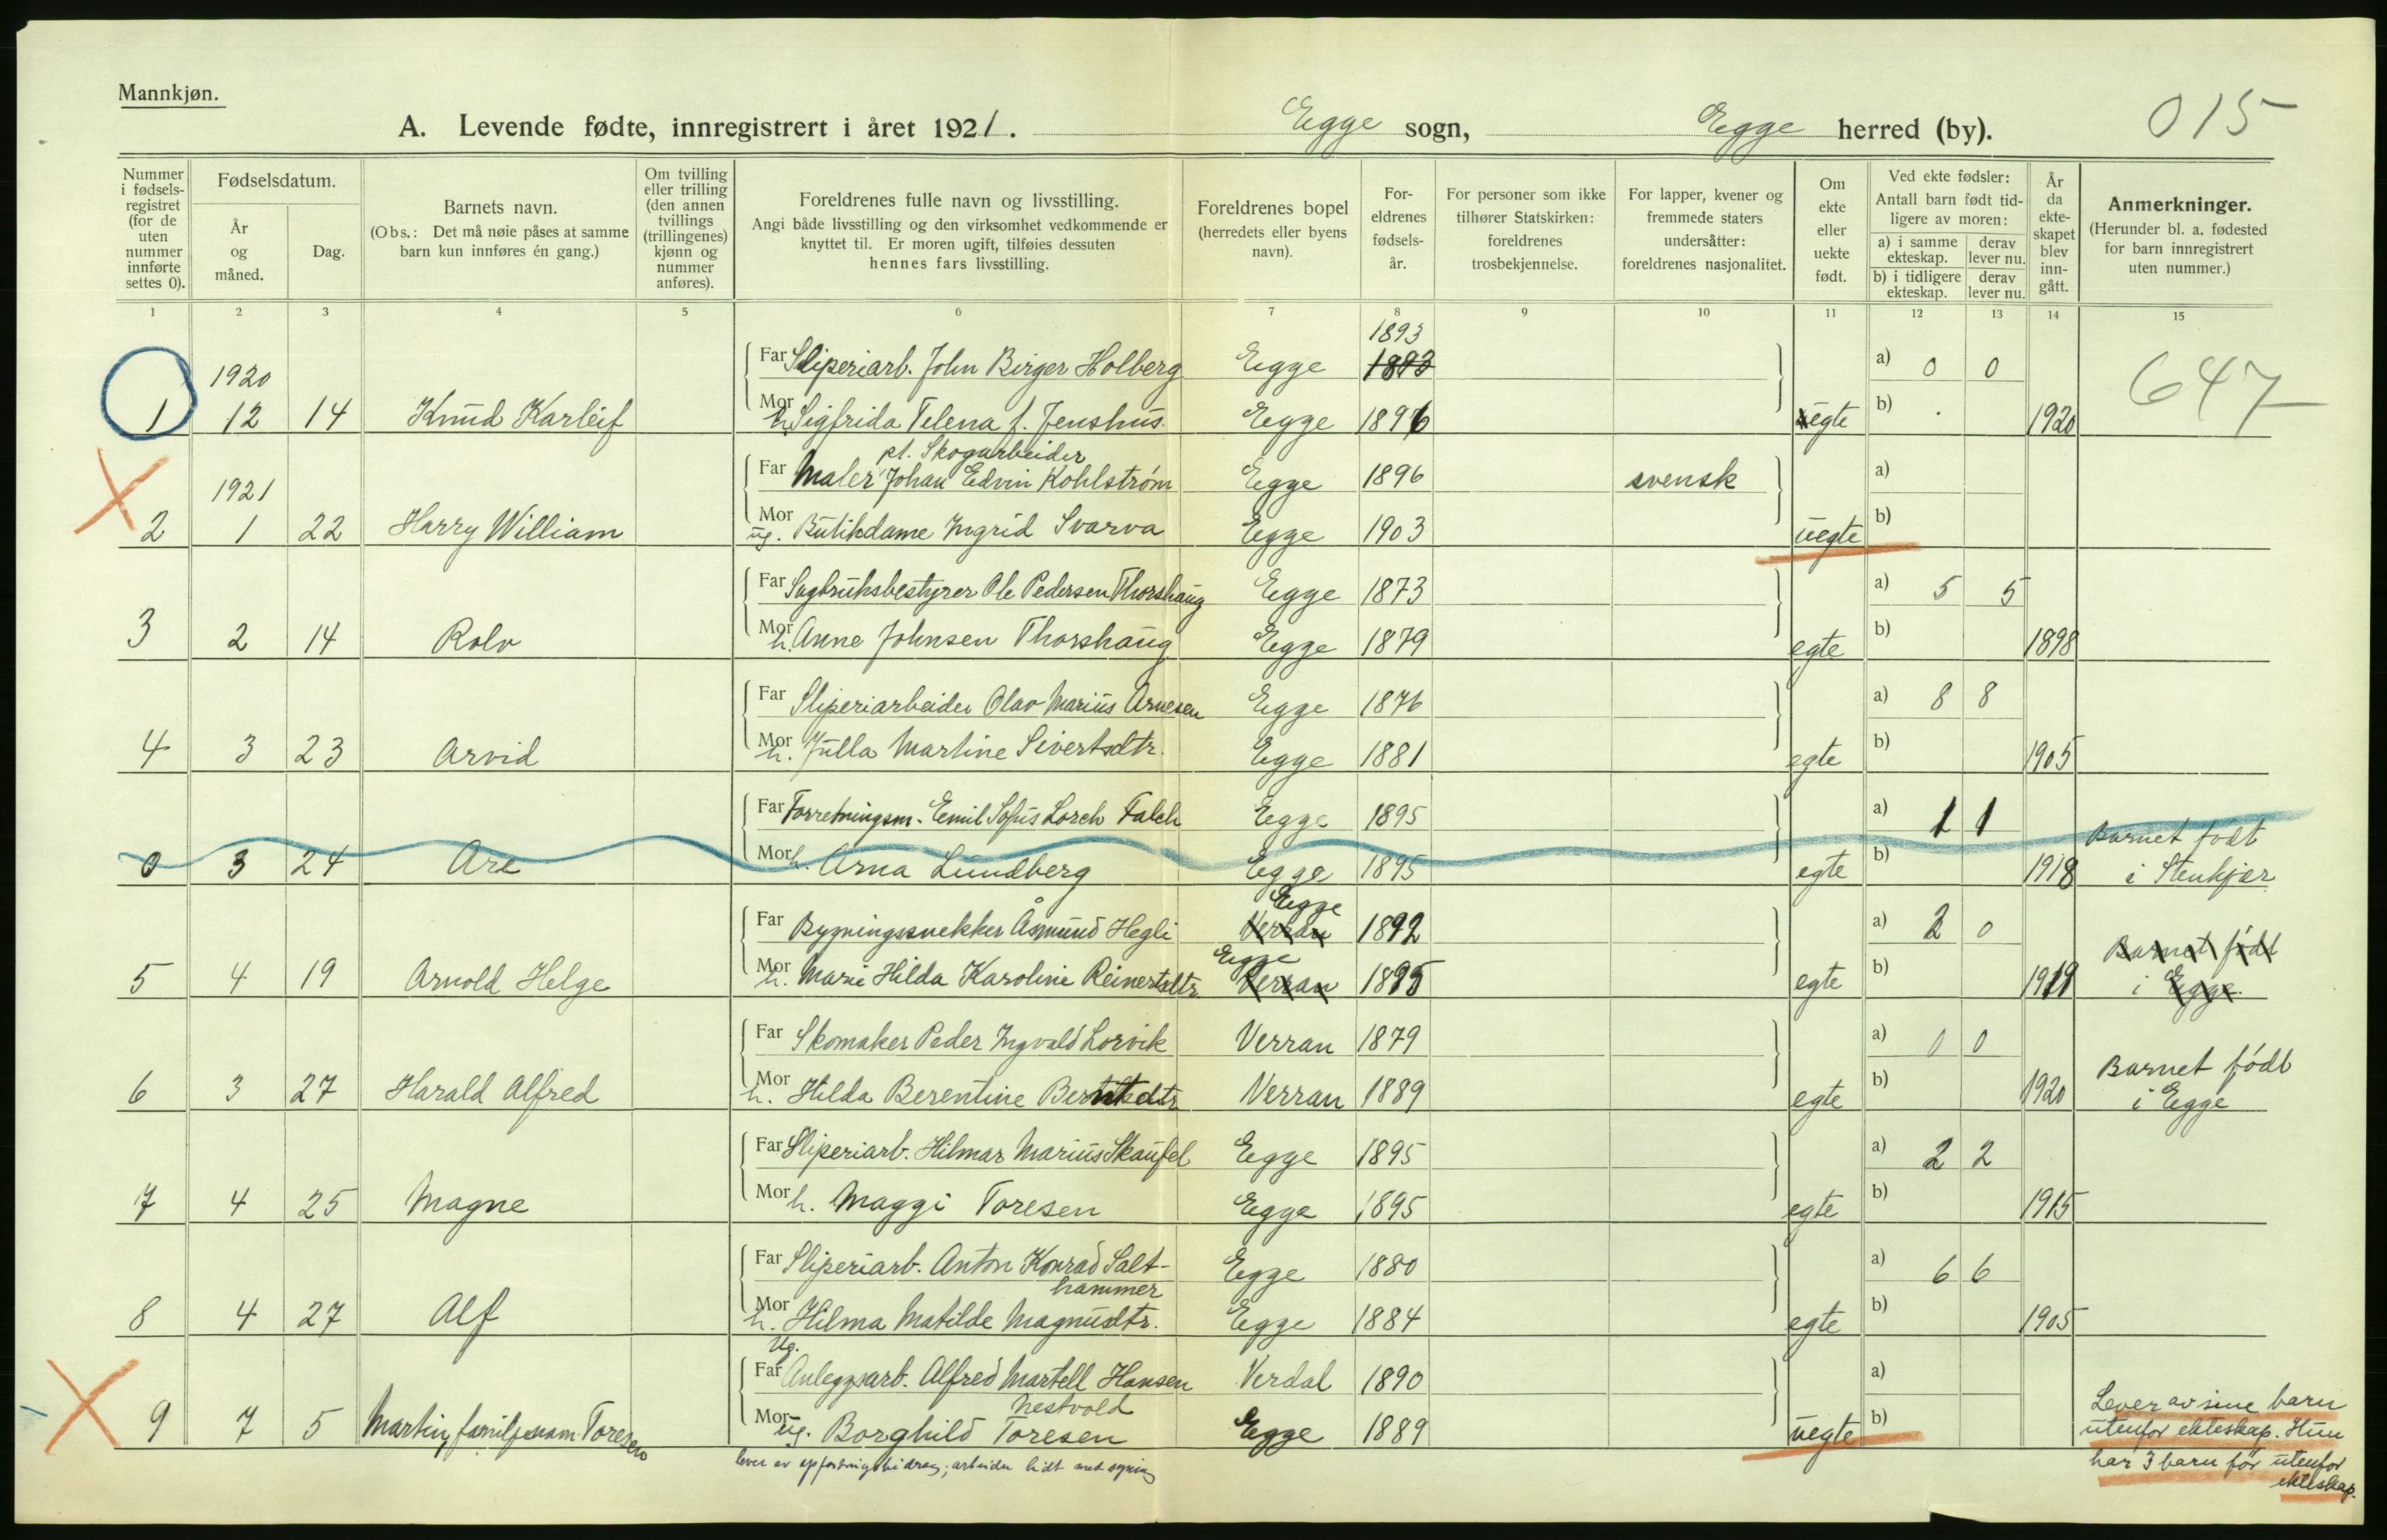 Mannkjøn.
A. Levende fødte, innregistrert i året 1921. Egge sogn, Egge herred (by). 015
Nummer i fødselsregistret (for de uten nummer innførte settes 0).
Fødselsdatum.
År og måned.
Dag.
Barnets navn.
(Obs.: Det må nøie påses at samme barn kun innføres én gang.)
Om tvilling eller trilling (den annen tvillings (trillingenes) kjønn og nummer anføres).
Foreldrenes fulle navn og livsstilling.
Angi både livsstilling og den virksomhet vedkommende er knyttet til. Er moren ugift, tilføies dessuten hennes fars livsstilling.
Foreldrenes bopel (herredets eller byens navn).
For-eldrenes fødsels-år.
For personer som ikke tilhører Statskirken: foreldrenes trosbekjennelse.
For lapper, kvener og fremmede staters undersåtter: foreldrenes nasjonalitet.
Om ekte eller uekte født.
Ved ekte fødsler:
Antall barn født tidligere av moren:
a) i samme ekteskap. derav lever nu.
b) i tidligere ekteskap. derav lever nu.
År da ekteskapet blev inngått.
Anmerkninger.
(Herunder bl. a. fødested for barn innregistrert uten nummer.)
1 2 3 4 5 6 7 8 9 10 11 12 13 14 15
1893
Far Sliperiarb. John Birger Holberg Egge 1893 a) 0 0 647
1920
1 12 14 Knud Karleif Mor h. Sigfrida Telena f. Jenshus. Egge 1896 egte b) . 1920
pt. Skogarbeider
Far Maler Johan Edvin Kohlstrøm Egge 1896 svensk a)
1921
2 1 22 Harry William Mor ug. Butikdame Ingrid Svarva Egge 1903 uegte b)
Far Sagbruksbestyrer Ole Pedersen Thorshaug Egge 1873 a) 5 5
3 2 14 Rolv Mor h. Anne Johnsen Thorshaug Egge 1879 egte b) 1898
Far Sliperiarbeider Olav Marius Arnesen Egge 1876 a) 8 8
4 3 23 Arvid Mor h. Julla Martine Sivertsdtr. Egge 1881 egte b) 1905
Far Forretningsm. Emil Sofus Lorch Falch Egge 1895 a) 1 1 Barnet født
0 3 24 Are Mor h. Arna Lundberg Egge 1895 egte b) 1918 i Stenkjær
Egge
Far Bygningssnekker Åsmund Hegli Verran 1892 a) 2 0 Barnet født
Egge
5 4 19 Arnold Helge Mor h. Marie Hilda Karoline Reinertsdtr Verran 1895 egte b) 1919 i Egge.
Far Skomaker Peder Ingvald Lorvik Verran 1879 a) 0 0 Barnet født
6 3 27 Harald Alfred Mor h. Hilda Berentine Verran 1889 egte b) 1920 i Egge
Far Sliperiarb. Hilmar Marius Skaufel Egge 1895 a) 2 2
7 4 25 Magne Mor h. Maggi Toresen Egge 1895 egte b) 1915
Far Sliperiarb. Anton Konrad Salt- Egge 1880 a) 6 6
hammer
8 4 27 Alf Mor h. Hilma Matilde Magnusdtr. Egge 1884 egte b) 1905
Ug.
Far Anleggsarb. Alfred Martell Hansen Verdal 1890 a)
Nestvold
9 7 5 Martin, familjenavn Toresen Mor ug. Borghild Toresen Egge 1889 uegte b)
Lever av sine barn
utenfor ekteskap. Hun
har 3 barn før utenfor
ekteskap.
lever av opfostringsbidrag; arbeider lidt med syning